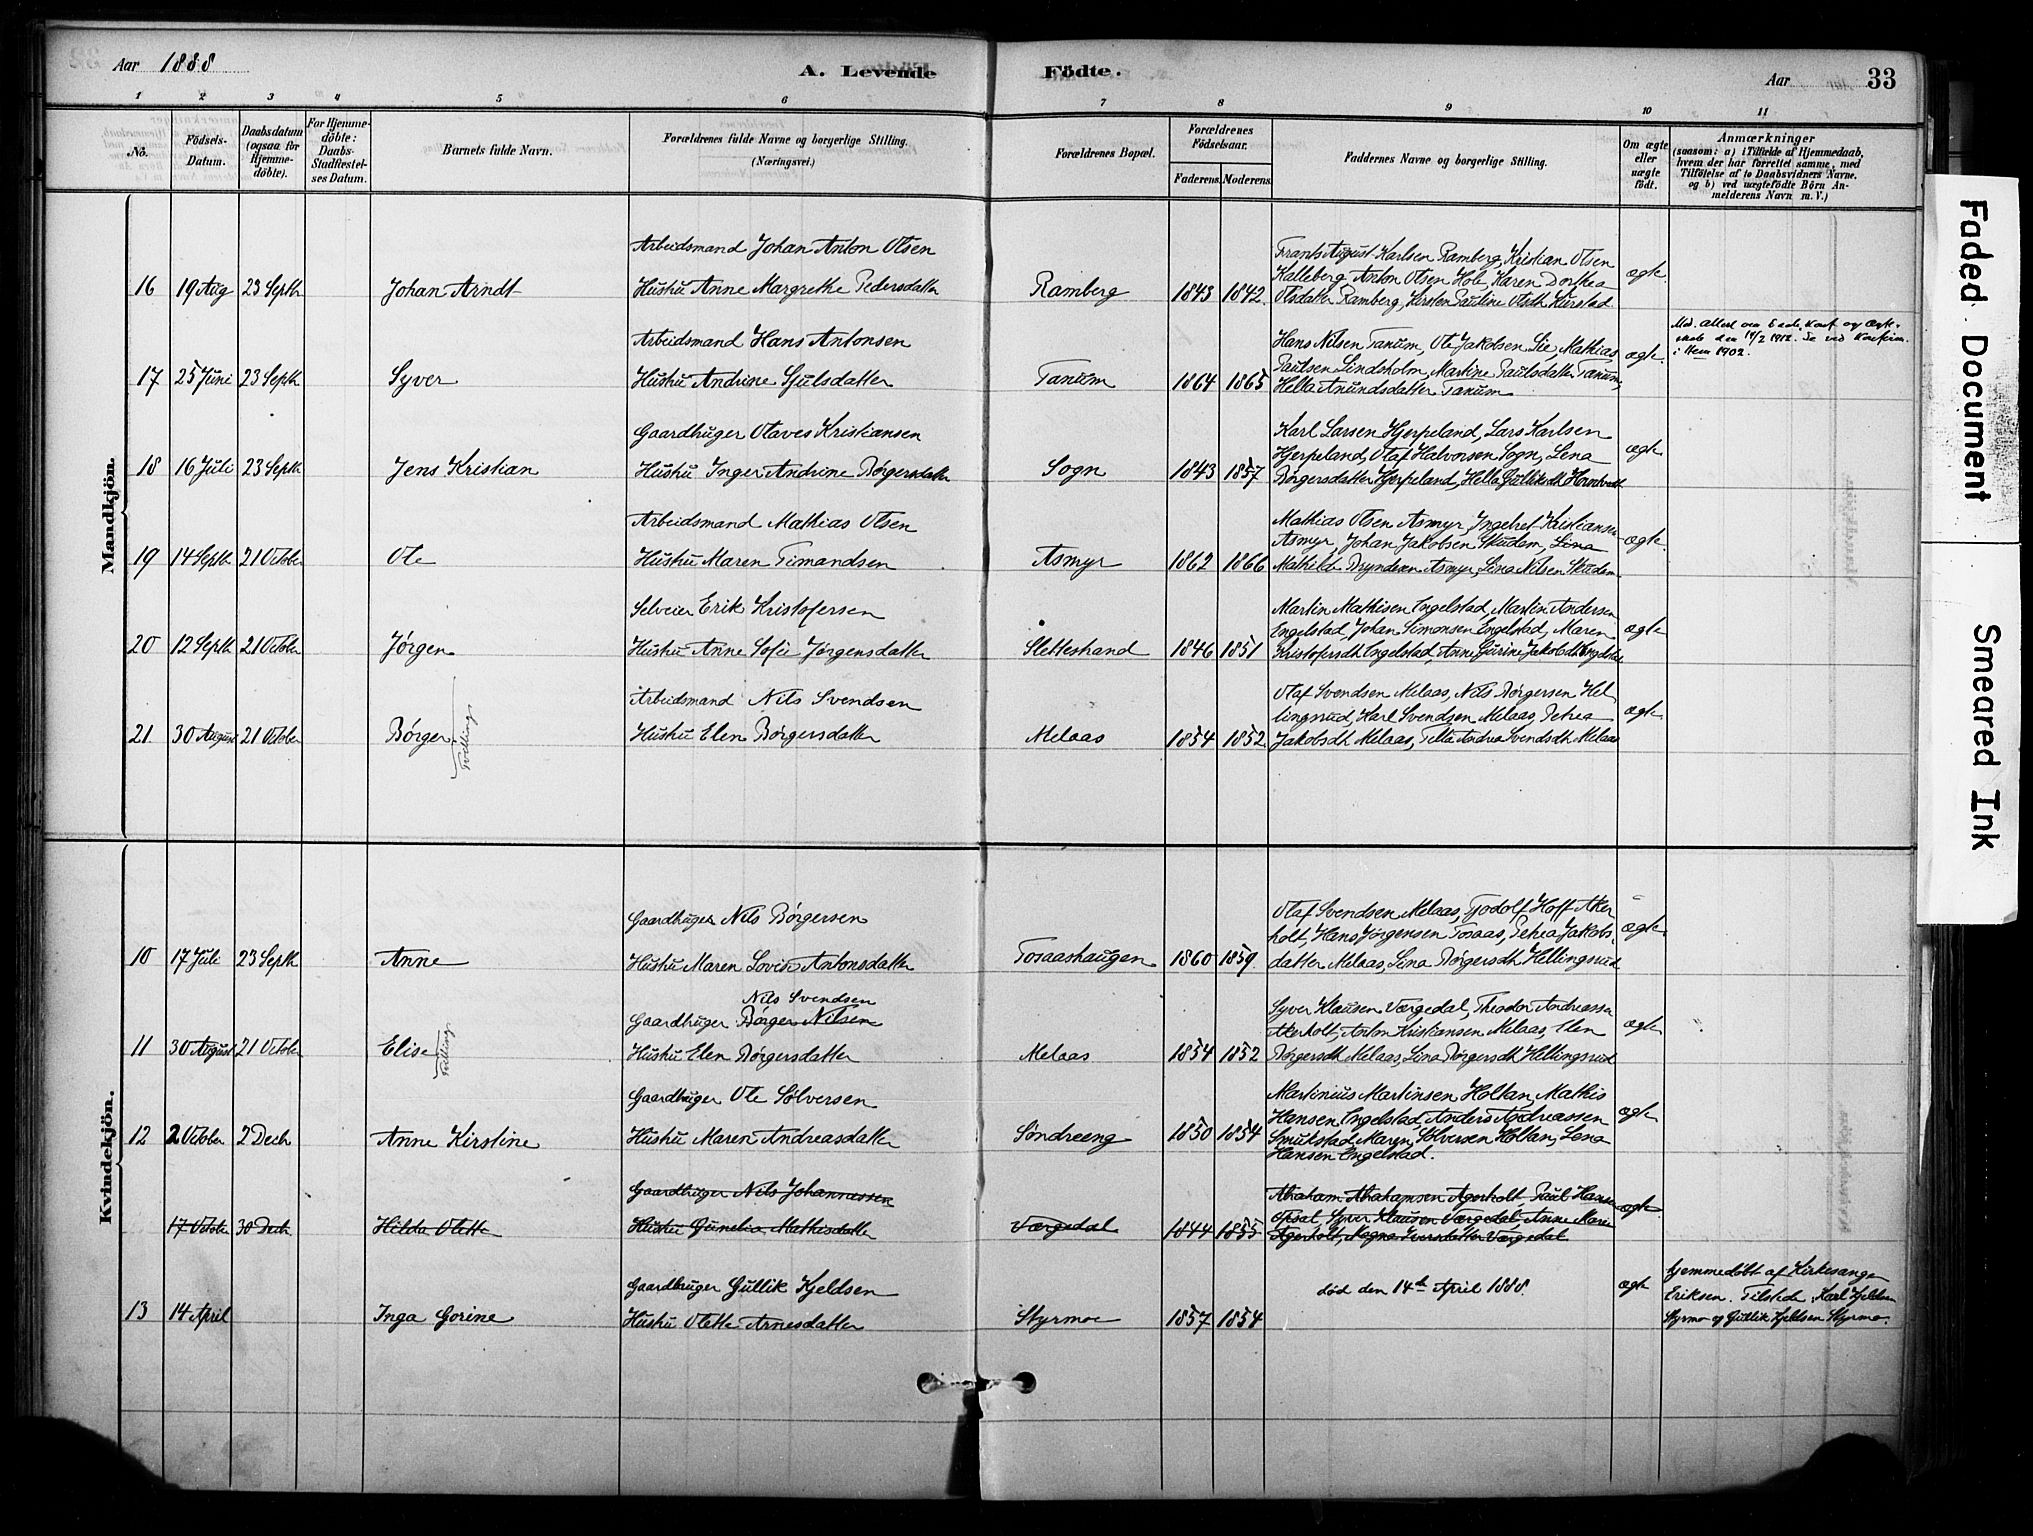 Aar 1888
A. Levende Födte.
Aar 33
1 2 3 4 5 6 7 8 9 10 11
No.
Födsels-Datum.
Daabsdatum (ogsaa for Hjemme-döbte).
For Hjemme-döbte: Daabs-Stadfæstel-ses Datum.
Barnets fulde Navn.
Forældrenes fulde Navne og borgerlige Stilling. (Næringsvei.)
Forældrenes Bopæl.
Forældrenes Födselsaar.
Faderens. Moderens.
Faddernes Navne og borgerlige Stilling.
Om ægte eller uægte födt.
Anmærkninger
(saasom: a) i Tilfælde af Hjemmedaab,
hvem der har forrettet samme, med
Tilföielse af to Daabsvidners Navne.
og b) ved uægtefödte Börn An-
melderens Navn m. V.)
Mandkjön.
Arbeidsmand Johan Anton Olsen
16 19 Aug 23 Septb Johan Arndt Hustru Anne Margrethe Pedersdatter Ramberg 1843 1842
Frants August Karlsen Ramberg, Kristian Olsen
Kalleberg, Anton Olsen Hole, Karen Dorthea
Olsdatter Ramberg, Kirsten Pauline Olsdtr
ægte.
Arbeidsmand Hans Antonsen
17 25 Juni 23 Septb Syver Hustru Andrine Sjulsdatter Tanum 1864 1865
Hans Nilsen Tanum, Ole Jakobsen Lie, Mathias
Paulsen Lindsholm, Martine Paulsdatter Tanum,
Hella Anundsdatter Tanum
ægte.
i Hem 1902.
Gaardbruger Olaves Kristiansen
18 16 Juli 23 Septb Jens Kristian Hustru Inger Andrine Børgersdatter Sogn 1843 1857
Karl Larsen Hjerpeland, Lars Karlsen
Hjerpeland, Olaf Halvorsen Sogn, Lena
Børgersdatter Hjerpeland, Hella Gulliksdtr
ægte.
Arbeidsmand Mathias Olsen
19 14 Septb 21 October Ole Hustru Maren Timandsen Asmyr 1862 1866
Mathias Olsen Asmyr, Ingebret Kristiansen
Asmyr, Johan Jakobsen Skudem, Lina
Mathilde Asmyr, Lina Nilsen Skudem.
ægte.
Selveier Erik Kristofersen
20 12 Septb 21 October Jørgen Hustru Anne Sofie Jørgensdatter Slettestrand 1846 1851
Martin Mathisen Engelstad, Martin Andersen
Engelstad, Johan Simonsen Engelstad, Maren
Kristofersdtr Engelstad, Anne Gurine Jakobsdtr Engelstad
ægte
Arbeidsmand Nils Svendsen
21 30 August 21 October Børger Tvilling Hustru Elen Børgersdatter Melaas 1854 1852
Olaf Svendsen Melaas, Nils Børgersen Hel
lingsrud, Karl Svendsen Melaas, Petrea
Jakobsdtr Melaas, Andrea Svendsdtr Melaas
ægte.
Kvindekjön.
Gaardbruger Nils Børgersen
10 17 Juli 23 Septb Anne Hustru Maren Lovise Antonsdatter Tosaashaugen 1860 1859.
Olaf Svendsen Melaas, Tjodolf Hoff Aker
holt, Hans Jørgensen Tosaas, Petrea Jakobs-
datter Melaas, Lina Børgersdtr Hellingsrud
ægte.
Nils Svendsen
Gaardbruger Børger Nilsen
11 30 August 21 October Elise Tvilling Hustru Elen Børgersdatter Melaas 1854 1852
Syver Klausen Værgedal, Theodor Andreassen
Akerholt, Anton Kristiansen Melaas, Elen
Børgersdtr Melaas, Lina Børgersdtr Hellingsrud
ægte
Gaardbruger Ole Sølversen
12 2 October 2 Decb Anne Kirstine Hustru Maren Andreasdatter Søndreeng 1850 1854
Martinius Martinsen Holtan, Mathis
Hansen Engelstad, Anders Andreassen
Smukstad, Maren Sølversen Holtan, Lena
Hansen Engelstad.
ægte
Gaardbruger Nils Johannessen
17 October 30 Decb Hilda Olette Hustru Gunelia Mathisdatter Værgedal 1844 1855
Abraham Abrahamsen Agerholt, Paul Hansen
Opsal, Syver Klausen Værgedal, Anne Marie
Agerholt, Magna Iversdatter Værgedal
ægte.
Gaardbruger Gullik Kjeldsen
13 14 April Inga Gorine Hustru Olette Arnesdatter Styrmoe 1857 1854
død den 14de April 1888.
ægte
hjemmedøbt af Kirkesanger
Eriksen. Tilstede: Karl Kjeldsen
Styrmo og Gullik Kjeldsen Styrmo.
Faded Document
Smeared Ink